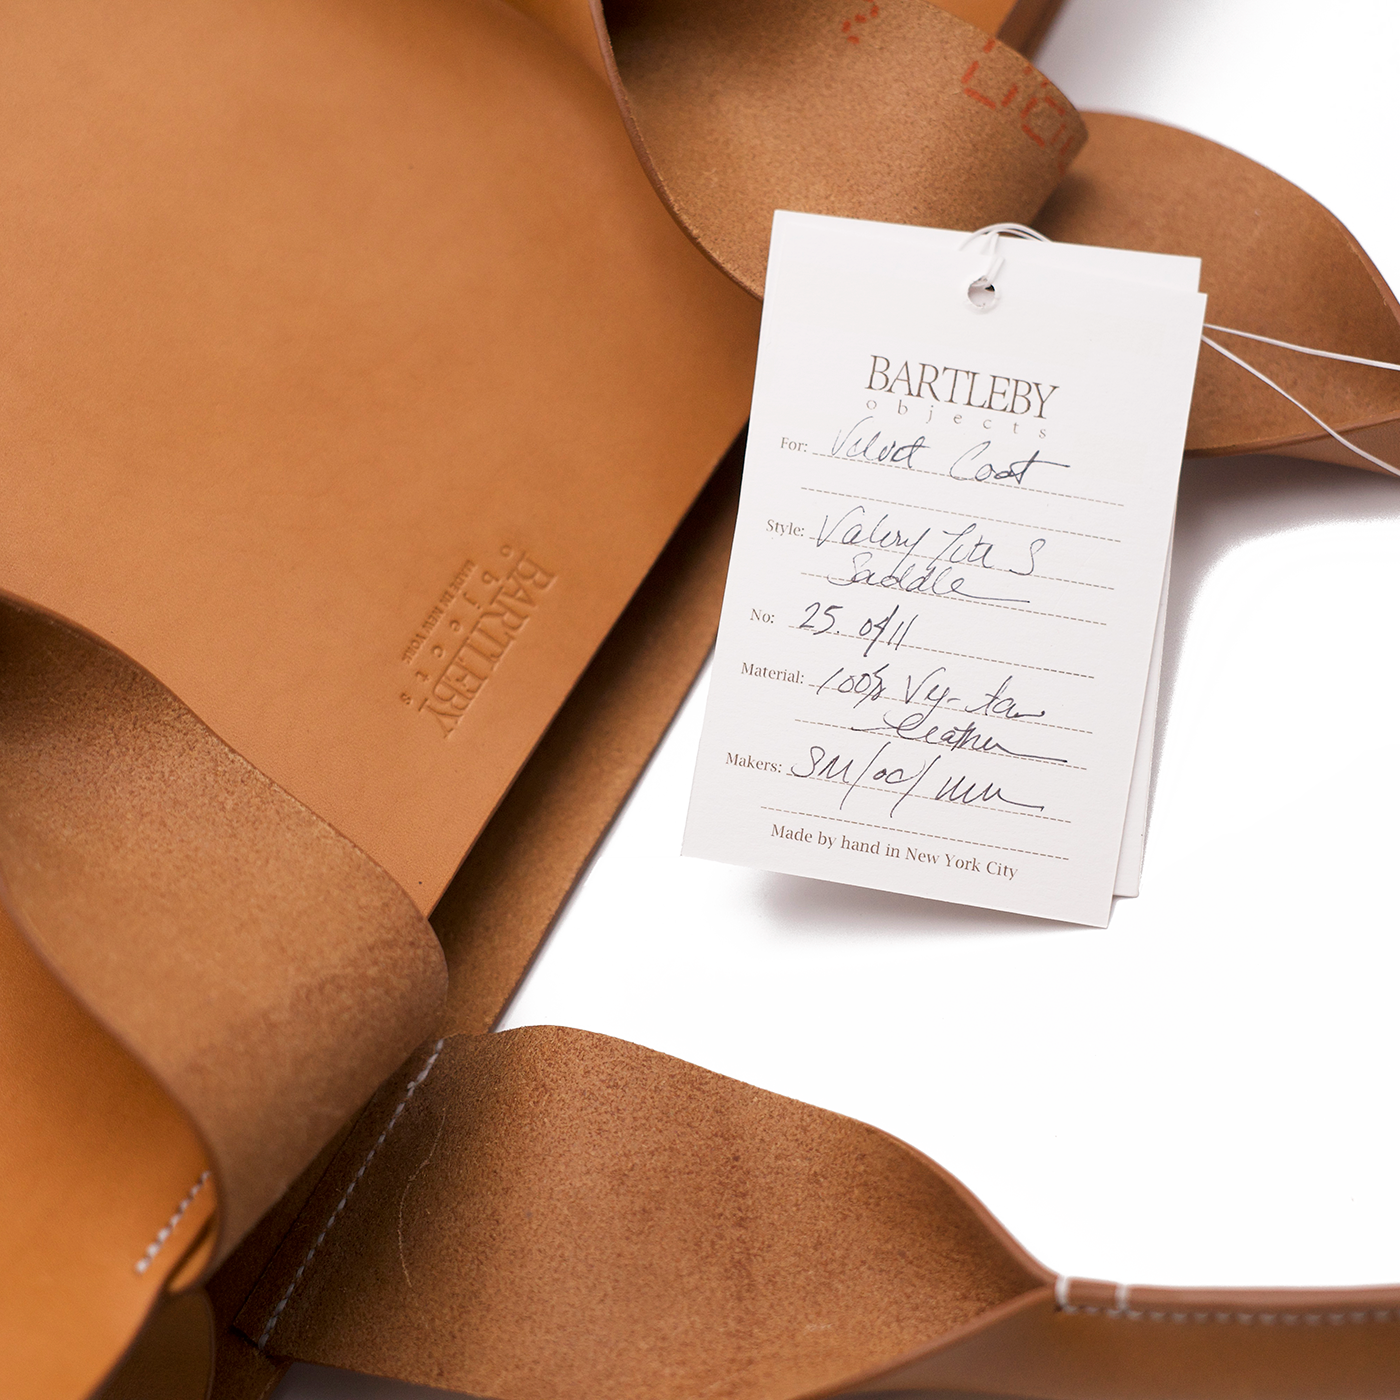 BARTLEBY
objects
For: Velvet Coat
Style: Valery Tote S
Saddle
No: 25. of 11
Material: 100% Veg-tan
leather
Makers: SM/oc/
Made by hand in New York City
BARTLEBY
objects
MADE IN NEW YORK